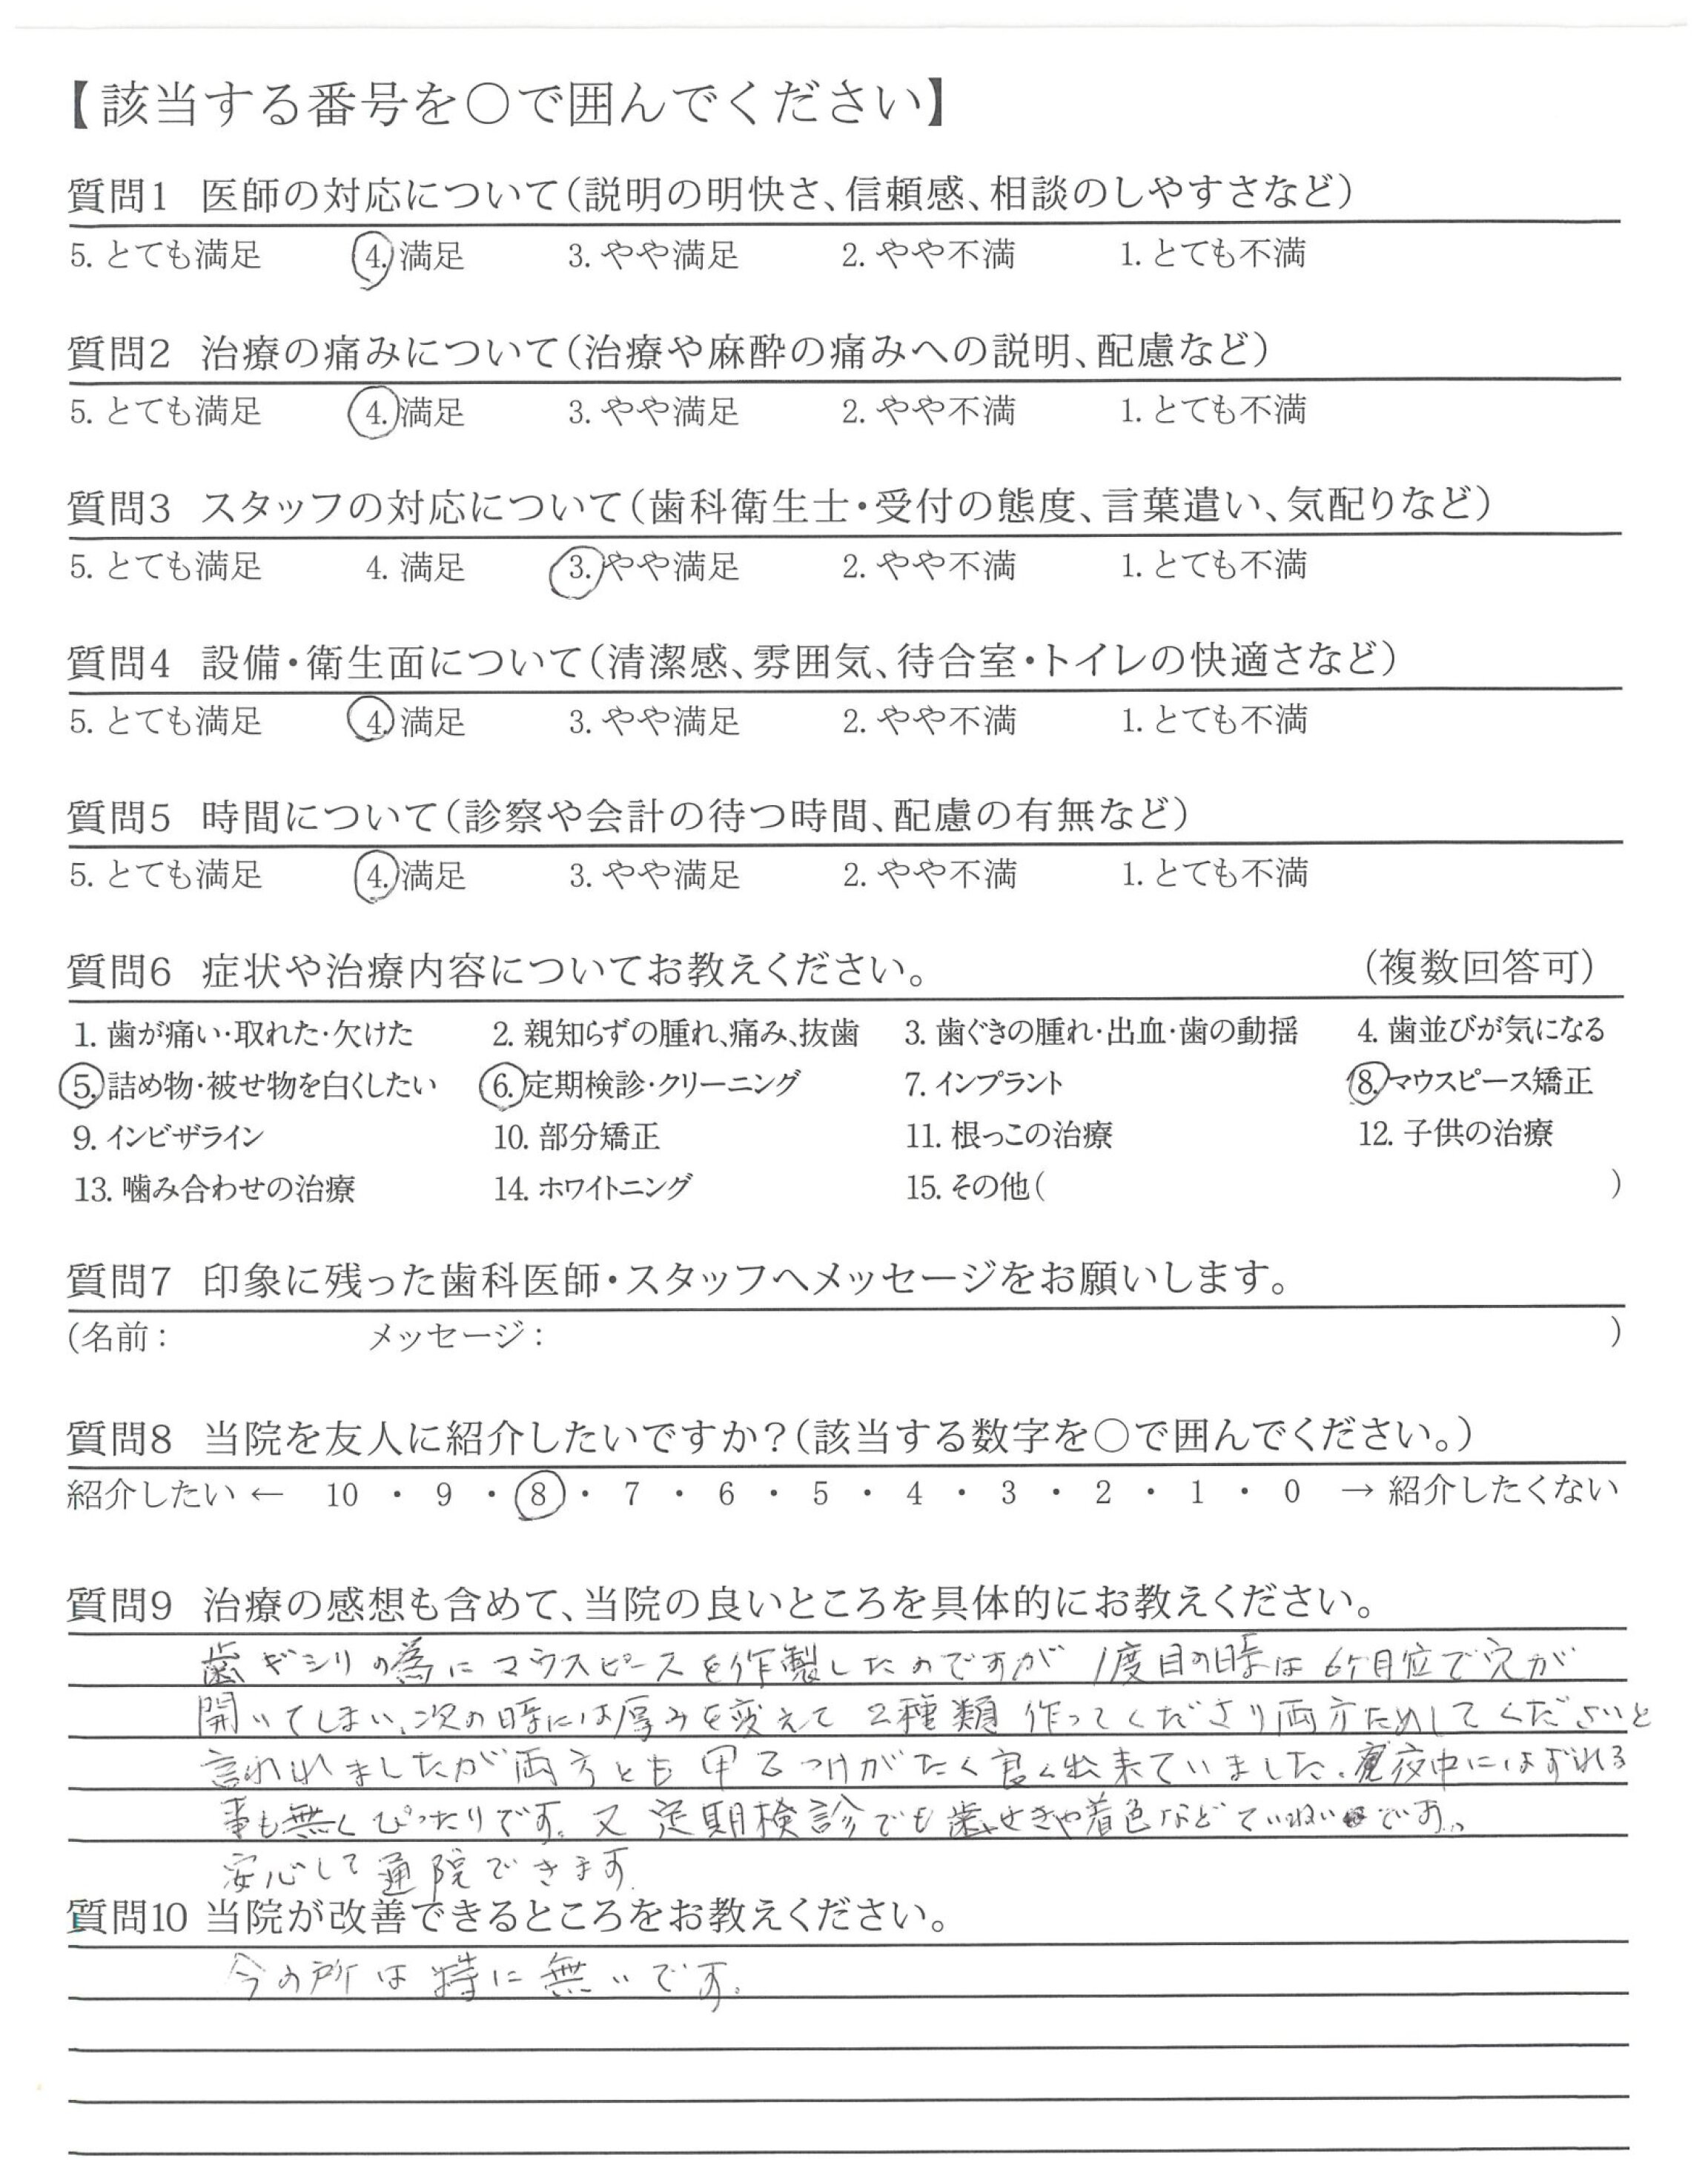 【該当する番号を○で囲んでください】
質問1 医師の対応について(説明の明快さ、信頼感、相談のしやすさなど)
5. とても満足 4. 満足 3. やや満足 2. やや不満 1. とても不満
質問2 治療の痛みについて(治療や麻酔の痛みへの説明、配慮など)
5. とても満足 4. 満足 3. やや満足 2. やや不満 1. とても不満
質問3 スタッフの対応について(歯科衛生士・受付の態度、言葉遣い、気配りなど)
5. とても満足 4. 満足 3. やや満足 2. やや不満 1. とても不満
質問4 設備・衛生面について(清潔感、雰囲気、待合室・トイレの快適さなど)
5. とても満足 4. 満足 3. やや満足 2. やや不満 1. とても不満
質問5 時間について(診察や会計の待つ時間、配慮の有無など)
5. とても満足 4. 満足 3. やや満足 2. やや不満 1. とても不満
質問6 症状や治療内容についてお教えください。 (複数回答可)
1. 歯が痛い・取れた・欠けた 2. 親知らずの腫れ、痛み、抜歯 3. 歯ぐきの腫れ・出血・歯の動揺 4. 歯並びが気になる
5. 詰め物・被せ物を白くしたい 6. 定期検診・クリーニング 7. インプラント 8. マウスピース矯正
9. インビザライン 10. 部分矯正 11. 根っこの治療 12. 子供の治療
13. 噛み合わせの治療 14. ホワイトニング 15. その他( )
質問7 印象に残った歯科医師・スタッフへメッセージをお願いします。
(名前: メッセージ: )
質問8 当院を友人に紹介したいですか?(該当する数字を○で囲んでください。)
紹介したい ← 10 ・ 9 ・ 8 ・ 7 ・ 6 ・ 5 ・ 4 ・ 3 ・ 2 ・ 1 ・ 0 → 紹介したくない
質問9 治療の感想も含めて、当院の良いところを具体的にお教えください。
歯ギシリの為にマウスピースを作製したのですが 1度目の時は 6ケ月位で穴が
開いてしまい、次の時には厚みを変えて 2種類 作ってくださり両方ためしてくださいと
言われましたが両方とも 甲乙つけがたく良く出来ていました。夜中にはずれる
事も無くぴったりです。又 定期検診でも歯せきや着色などていねいです。
安心して通院できます。
質問10 当院が改善できるところをお教えください。
今の所は特に無いです。